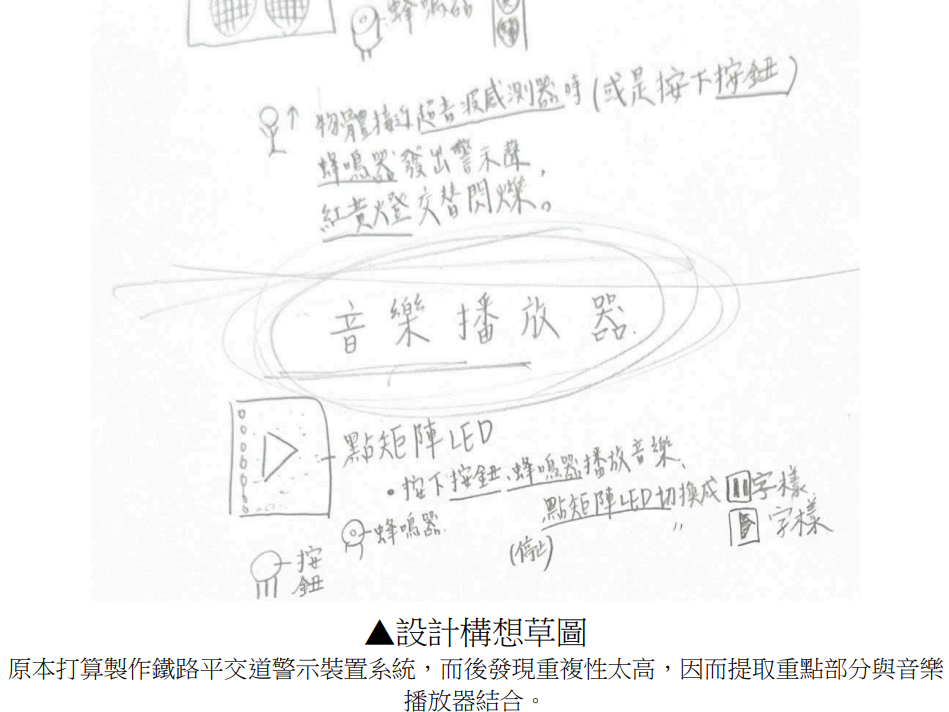 蜂鳴器
物體接近超音波感測器時(或是按下按鈕)
蜂鳴器發出警示聲,
紅黃燈交替閃爍。
音樂播放器
點矩陣LED
•按下按鈕、蜂鳴器播放音樂、
點矩陣LED切換成 字樣
(停止) 〃 字樣
蜂鳴器
按
鈕
▲設計構想草圖
原本打算製作鐵路平交道警示裝置系統，而後發現重複性太高，因而提取重點部分與音樂
播放器結合。